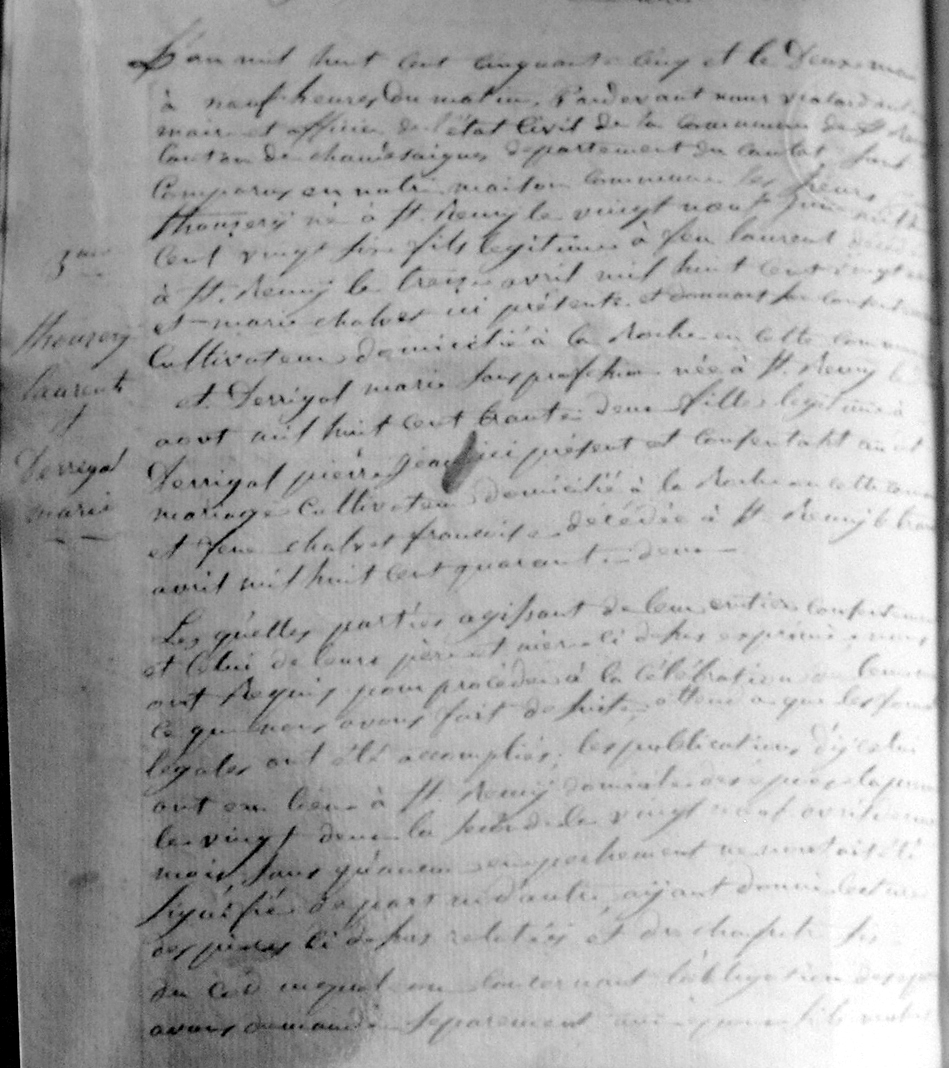 L'an mil huit cent cinquante cinq et le Deux mai
à neuf heures du matin. Pardevant nous
maire et officier de l'état Civil de la Commune de St Remy
Canton de chaudesaigues departement du cantal, sont
Comparus en notre maison Commune les sieurs
thouzery né à St. Remy le vingt neuf juin mil huit
Cent vingt six fils legitime à feu laurent décédé
à St. Remy le treize avril mil huit cent vingt
et marie chalvet ici présente et donnant son consentement
Cultivateur domicilié à la Roche en cette commune
et Derrigal marie sans profession née à St. Remy le
aout mil huit cent trente deux fille legitime à
Derrigal pierre jean ici présent et consentant au dit
mariage Cultivateur domicilié à la Roche en cette commune
et feue chalvet francoise décédée à St. Remy le
avril mil huit cent quarante deux
Les quelles parties agissant de leur entier consentement
et celui de leurs père et mère ci dessus exprimé, nous
ont Requis pour procéder à la célébration de leur
ce que nous avons fait de suite, attendu que les formes
légales ont été accomplies, les publications d'ycelui
ont eu lieu à St. Remy domicile des époux la
le vingt deux la seconde le vingt neuf avril
mois, sans qu'aucun empechement ne nous ait été
signifié de part ni d'autre, ayant donné lecture
des pièces ci dessus relatées et du chapitre six
du
avons demandé séparement
3eme
thouzery
laurent
et
Derrigal
marie